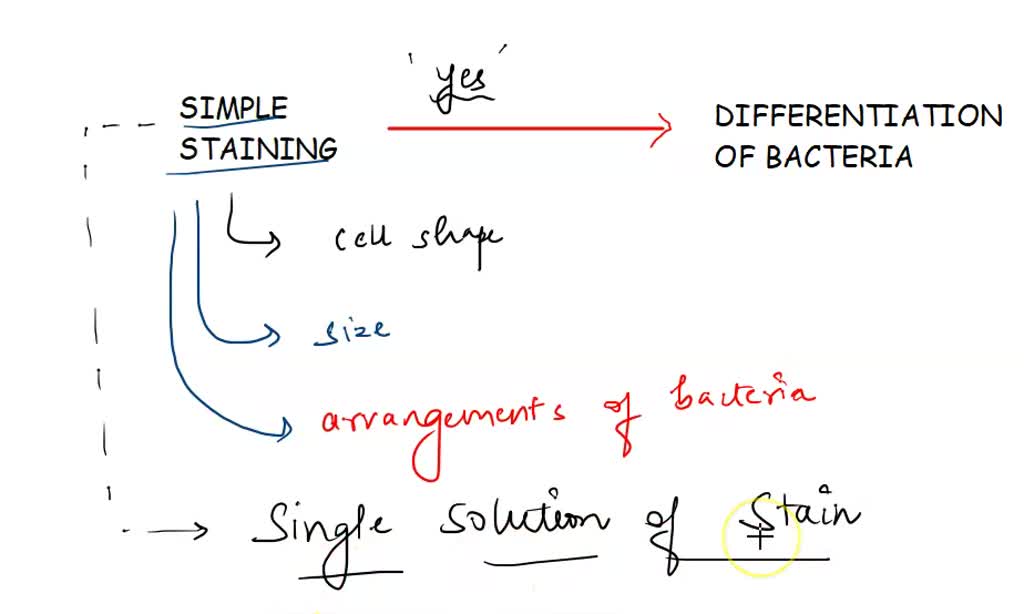 'yes'
SIMPLE
STAINING
DIFFERENTIATION
OF BACTERIA
cell shape
size
arrangements of bacteria
Single solution of stain